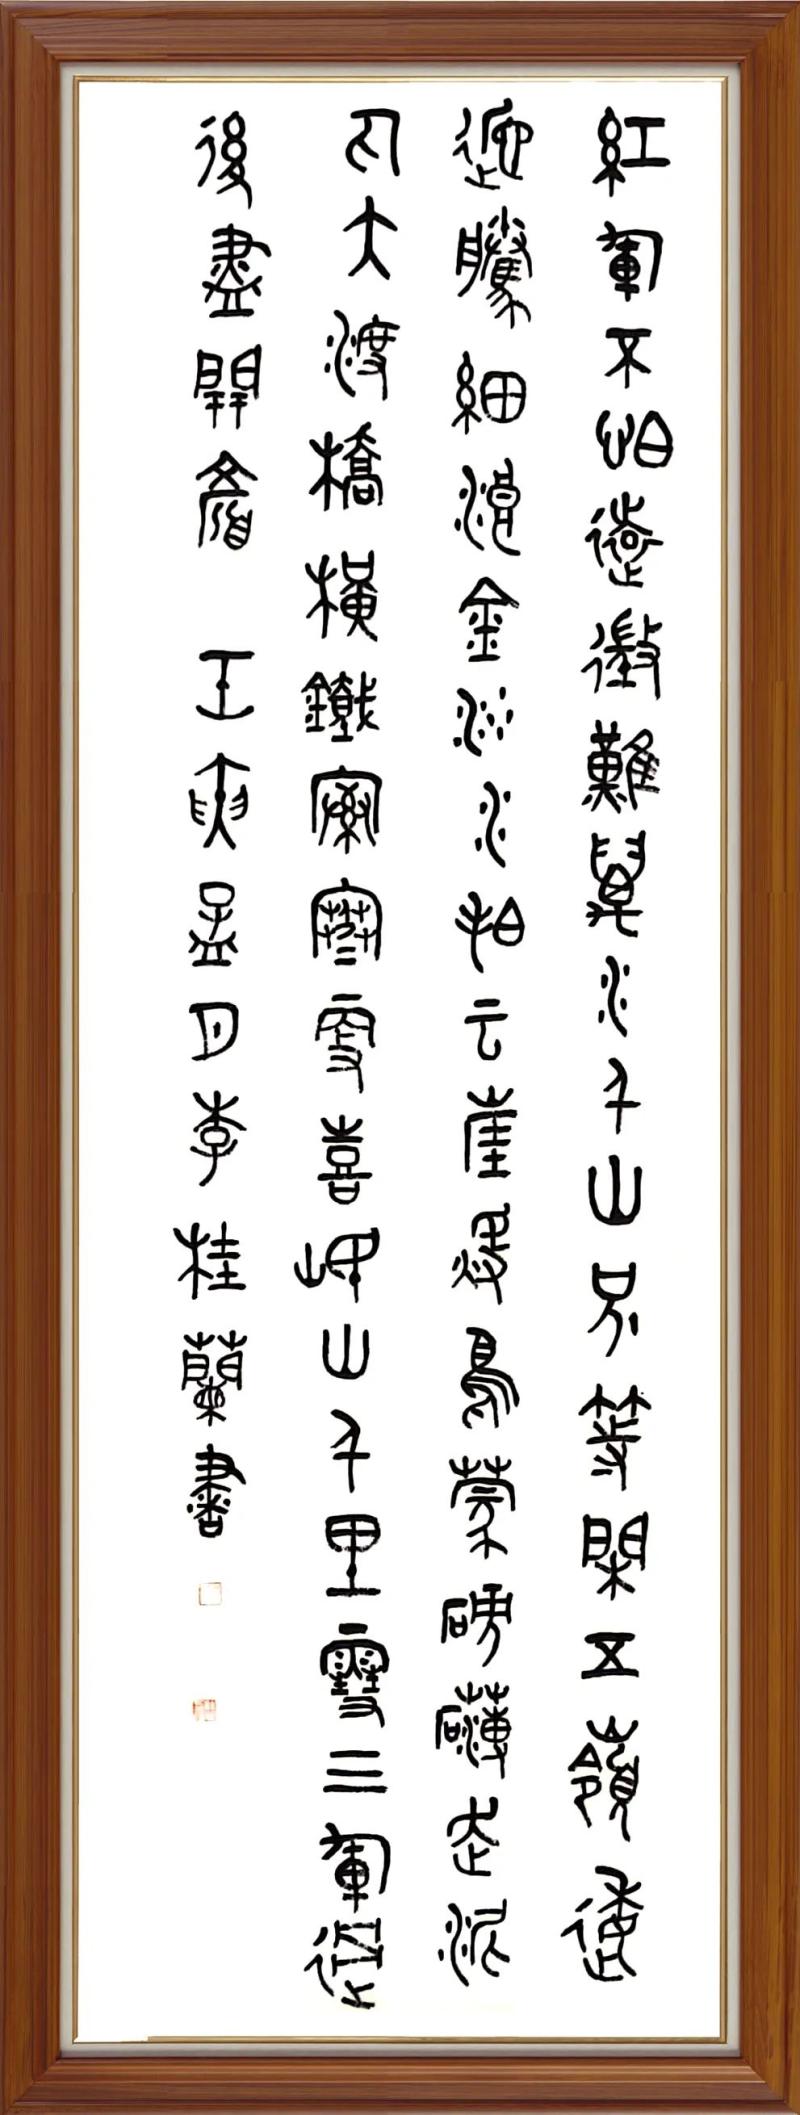 紅軍不怕遠徵難萬水千山只等閑五嶺逶
迤騰細浪金沙水拍云崖煖烏蒙磅礴走泥
丸大渡橋橫鐵索寒更喜岷山千里雪三軍過
後盡開顏 壬寅孟月李桂蘭書